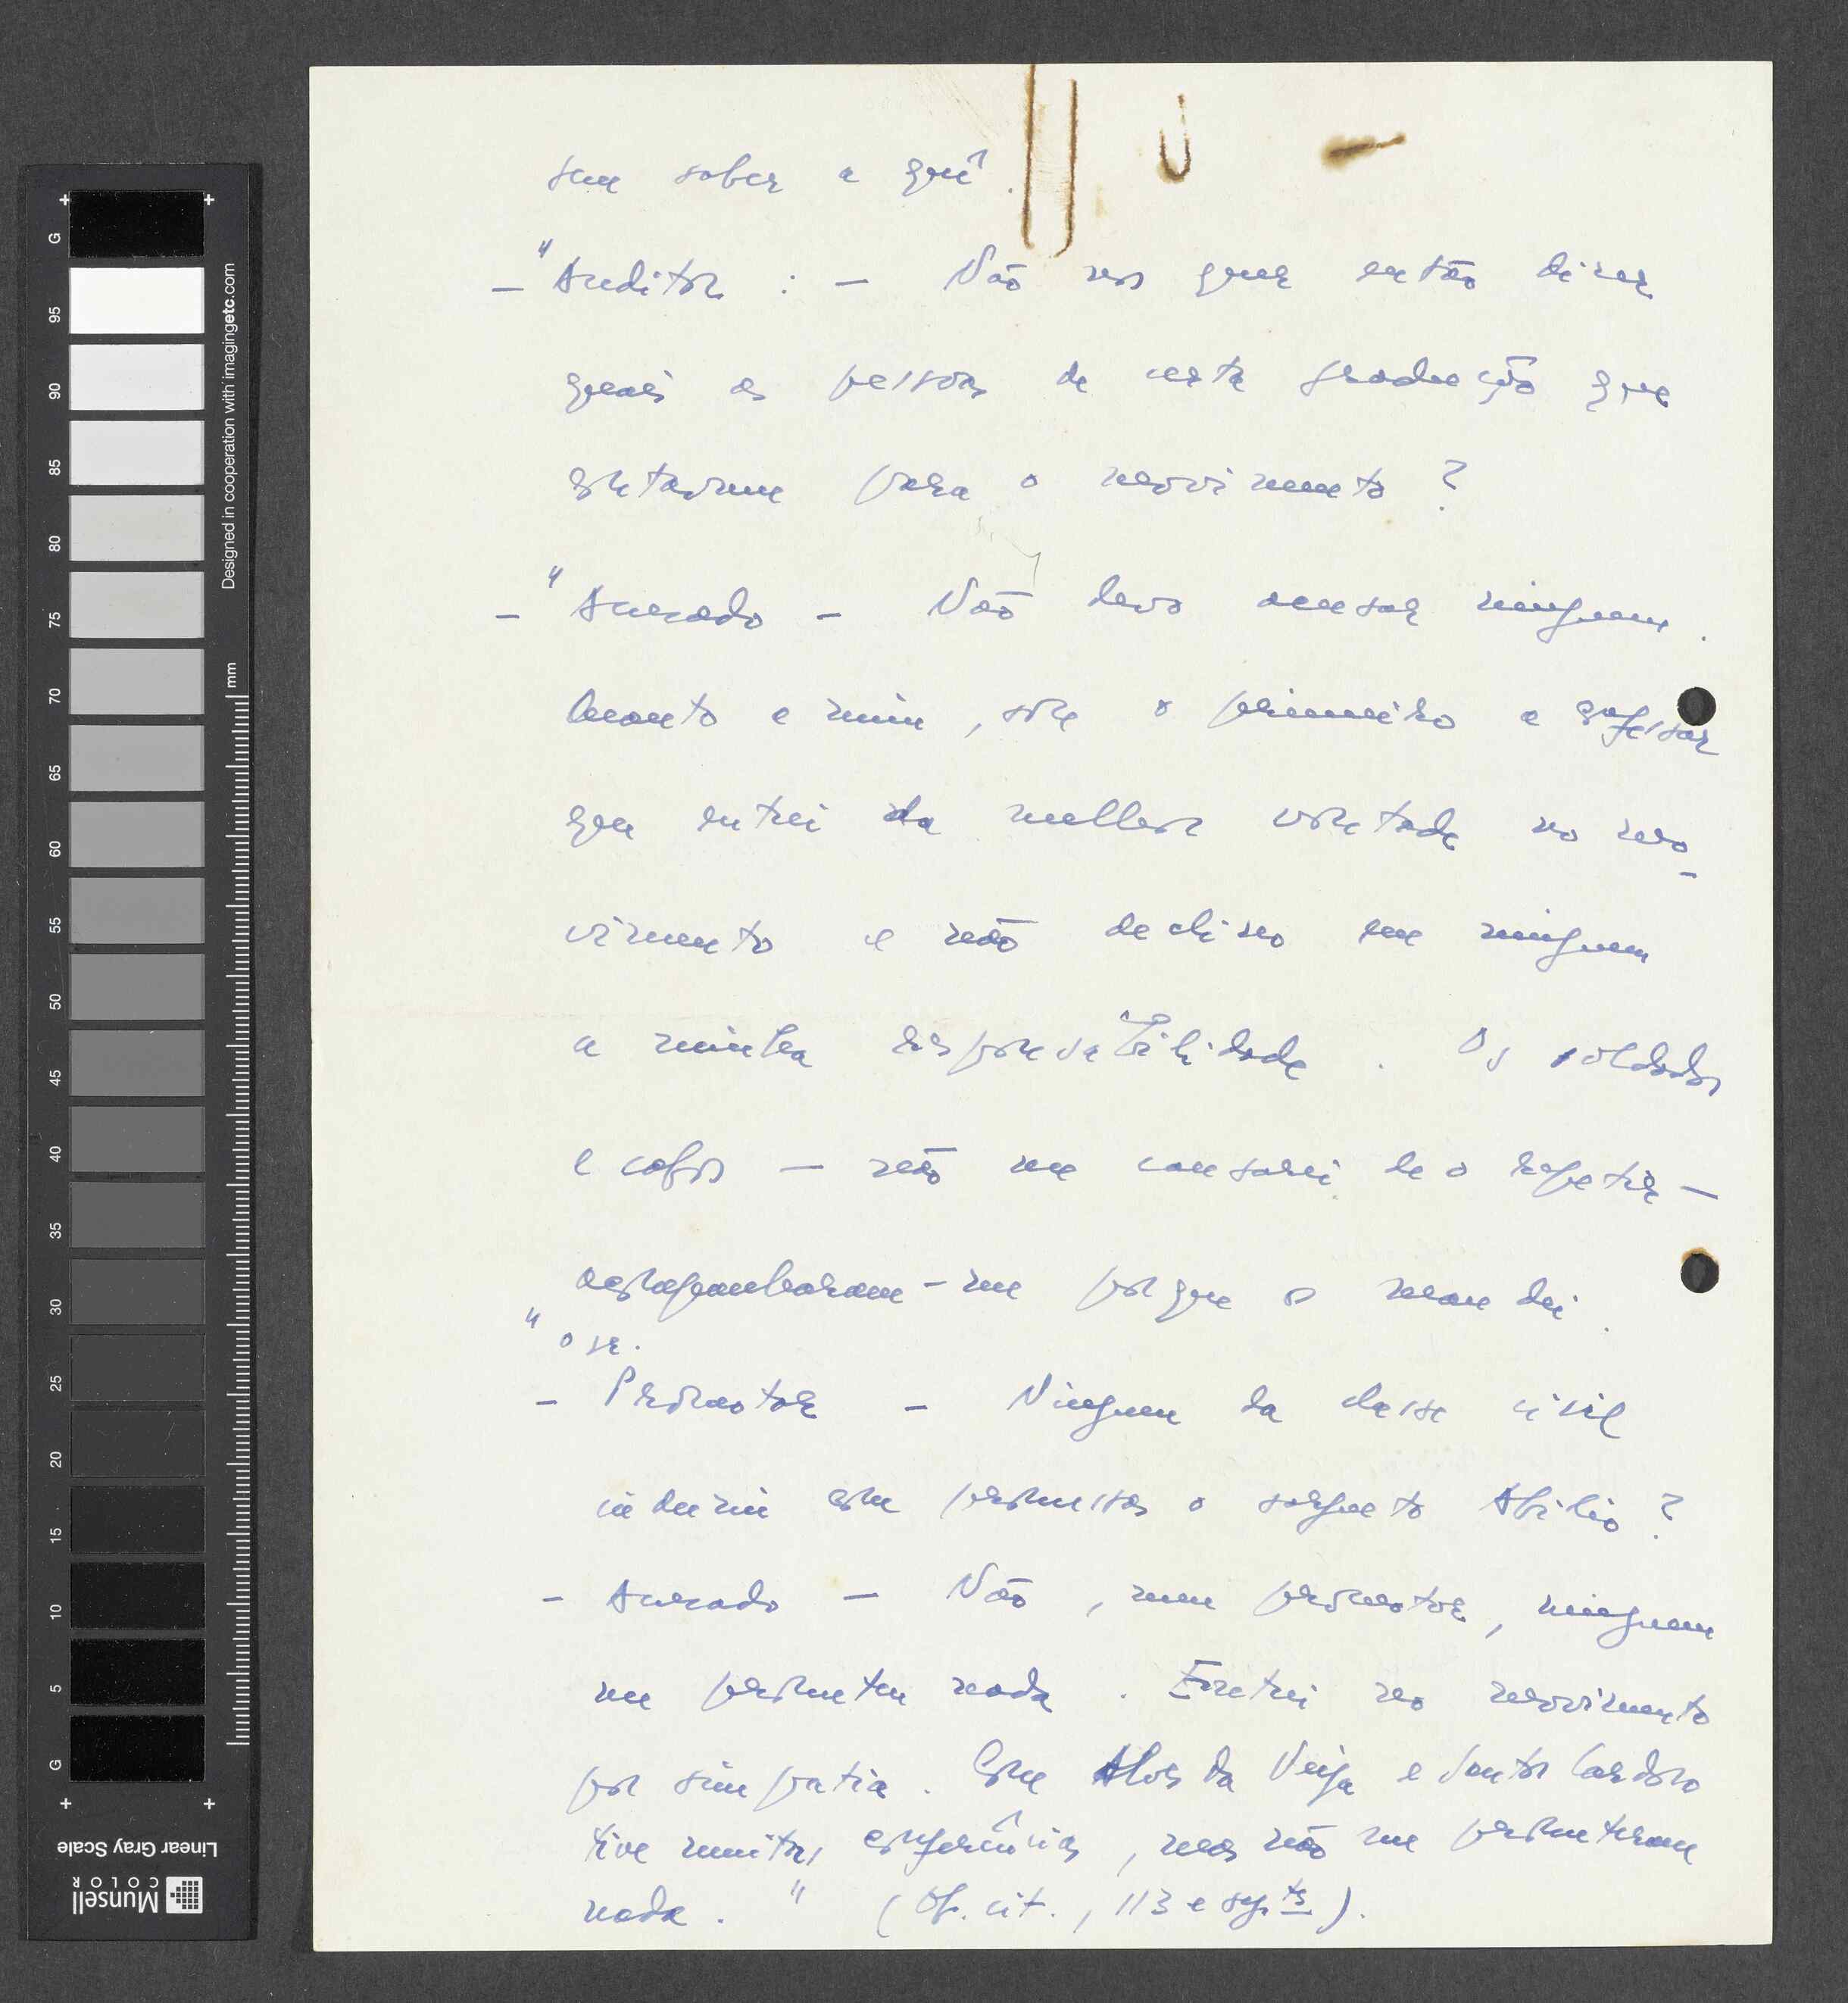 sem saber a quê.
— "Auditor : — Não nos quer então dizer
quais as pessoas de certa graduação que
entravam para o movimento ?
— "Acusado — Não devo acusar ninguem.
Quanto a mim, sou o primeiro a confessar
que entrei da melhor vontade no mo-
vimento e não declino em ninguem
a minha responsabilidade. Os soldados
e cabos — não me cansarei de o repetir —
acompanharam-me porque os mandei.
" o sr.
— Promotor — Ninguem da classe civil
induziu com promessas o sargento Abilio ?
— Acusado — Não, snr promotor, ninguem
me prometeu nada. Entrei no movimento
por simpatia. Com Alves da Veiga e Santos Cardoso
tive muitas conferências, mas não me prometeram
nada. " (Op. cit., 113 e segts).
G
95
90
85
80
75
70
65
60
55
50
45
40
35
30
25
20
15
10
5
G
mm
Designed in cooperation with imagingetc.com
Linear Gray Scale
Munsell
COLOR